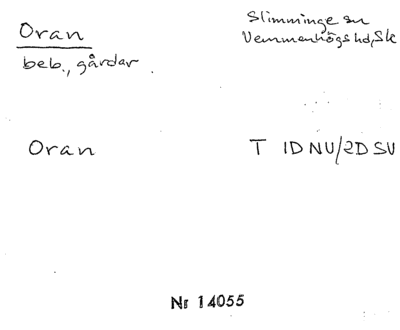 Oran
beb., gårdar.
Slimminge sn
Vemmenhögs hd, Sk
Oran
T 1D NV/2D SV
Nr 14055